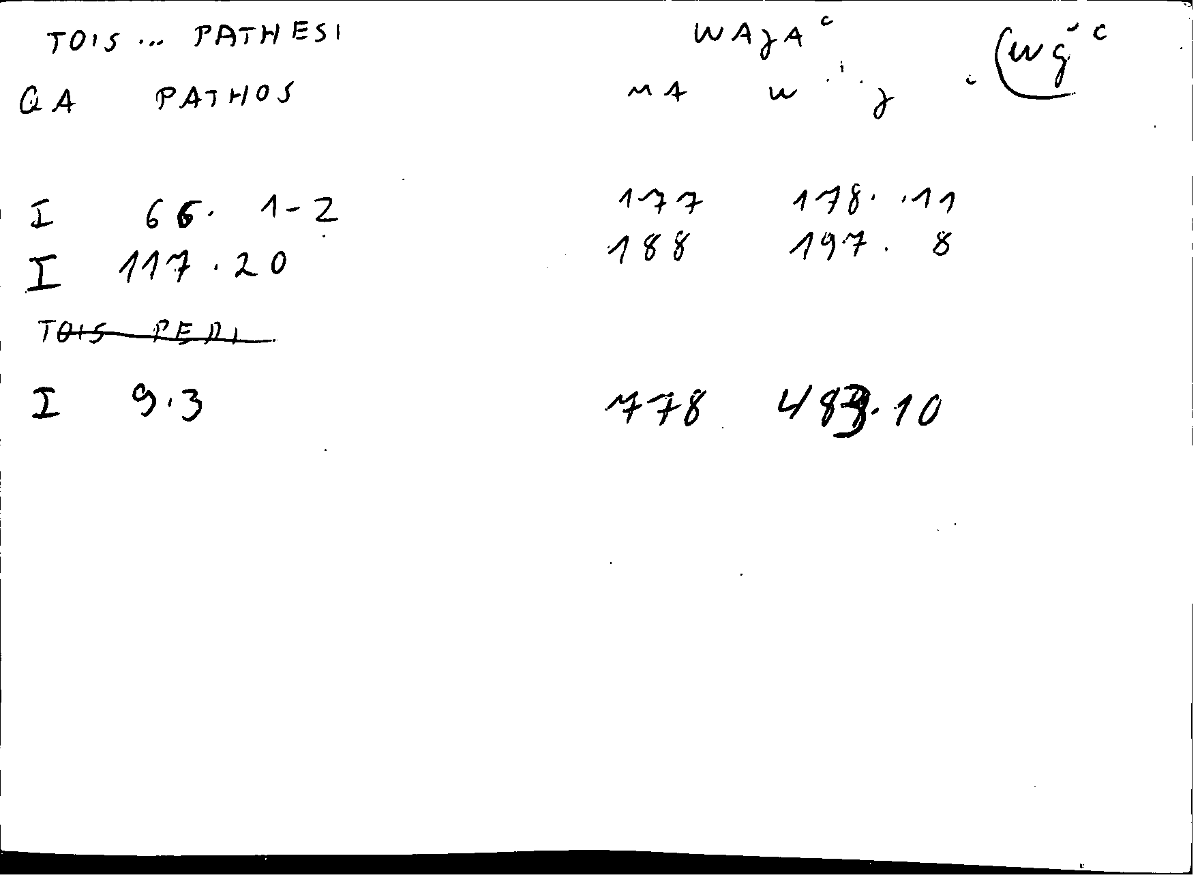 TOIS ... PATHESI WAJAᶜ (wǧᶜ
QA PATHOS MA W J
I 66. 1-2 177 178. 11
I 117.20 188 197. 8
TOIS PERI
I 9.3 778 483.10